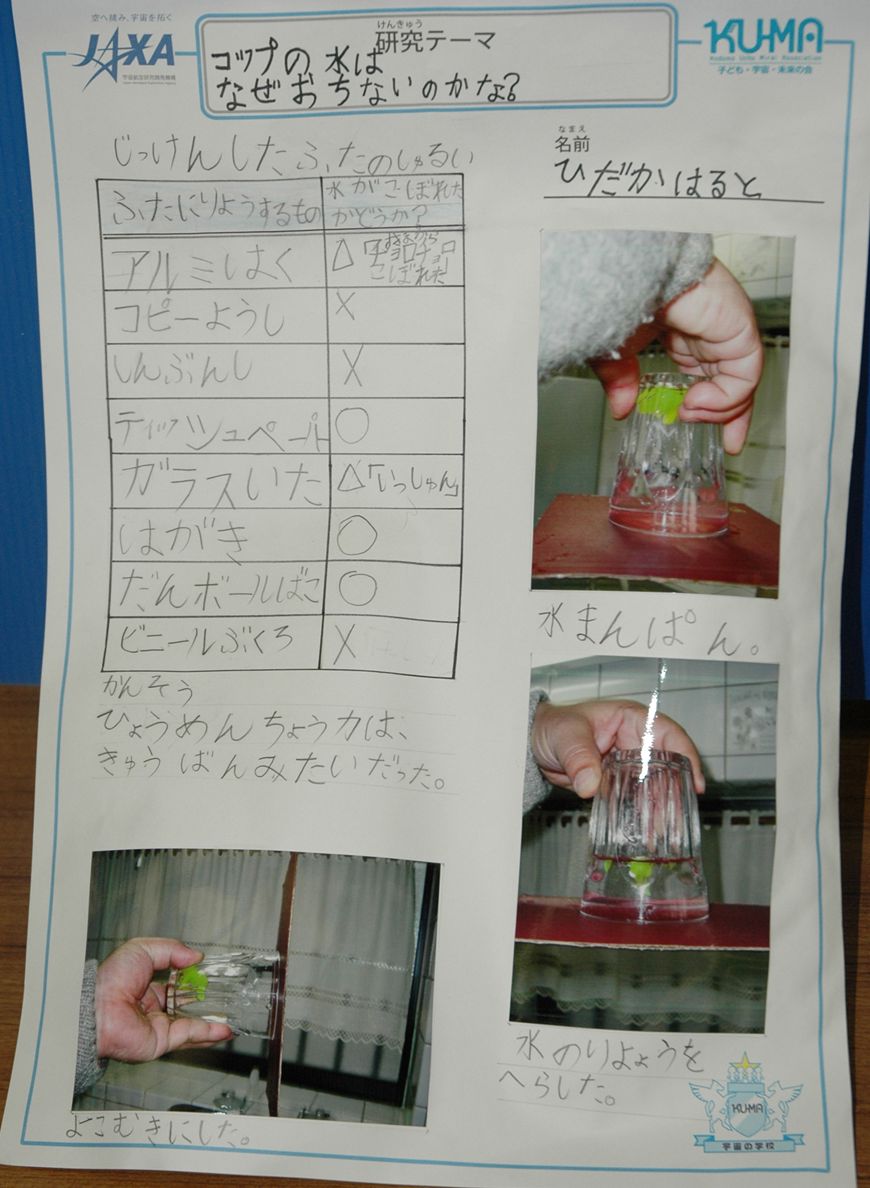 空へ挑み、宇宙を拓く
JAXA
宇宙航空研究開発機構
けんきゅう
研究テーマ
コップの水は
なぜおちないのかな?
KU-MA
Kodomo Uchu Mirai Association
子ども・宇宙・未来の会
なまえ
名前
ひだかはると
じっけんしたふたのしゅるい
ふたにりようするもの 水がこぼれたかどうか?
アルミはく △「すきまからチョロチョロこぼれた」
コピーようし X
しんぶんし X
ティッシュペーパー ○
ガラスいた △「いっしゅん」
はがき ○
だんボールばこ ○
ビニールぶくろ X
かんそう
ひょうめんちょう力は、
きゅうばんみたいだった。
水まんぱん。
水のりょうを
へらした。
よこむきにした。
KU-MA
宇宙の学校